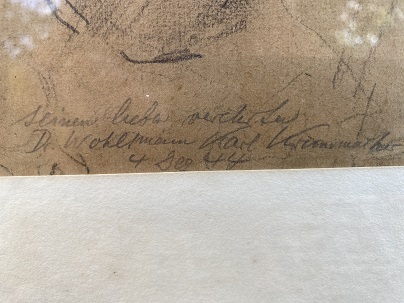 seinem lieben verehrten
Dr. Wohltmann Karl Krummacher
4 Dez 44